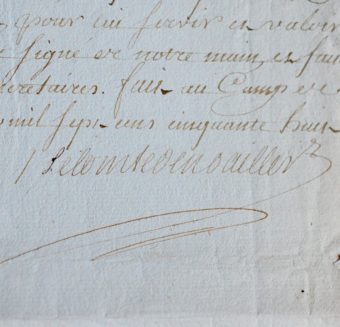 pour lui servir et valoir
signé de notre main, et fait
secretaires. fait au Camp de
mil sept cens cinquante huit
Le Comte de noailles